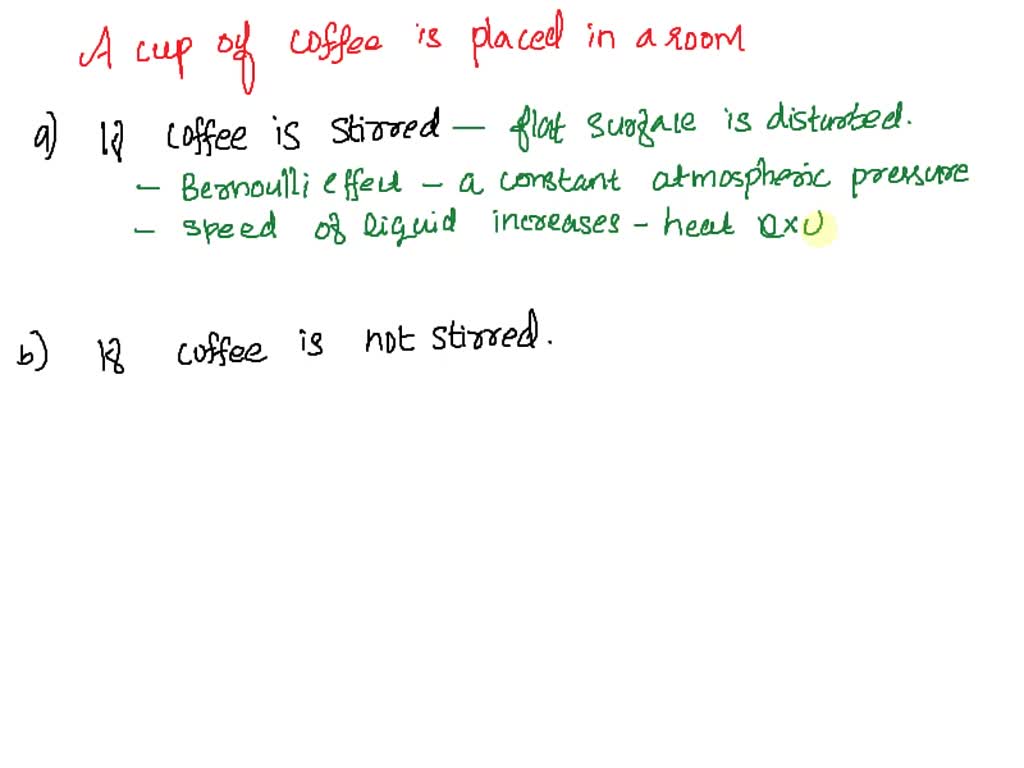 A cup of coffee is placed in a room
a) If coffee is stirred — flat surface is disturbed.
- Bernoulli effect - a constant atmospheric pressure
- speed of liquid increases - heat exc
b) If coffee is not stirred.